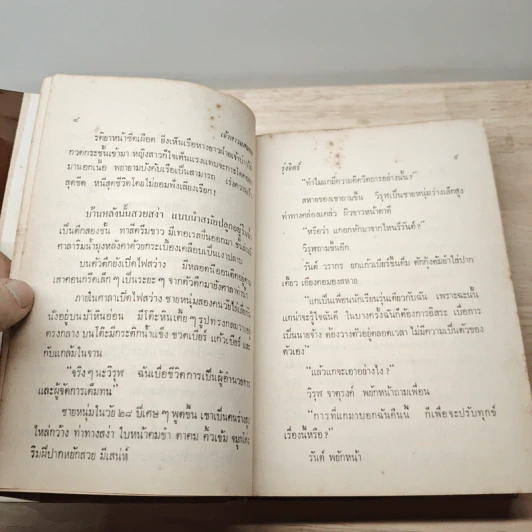 ๔
รติยาหน้าซีดเผือด ยิ่งเห็นเรือหางยาวฝ่ายเจ้าบ่าว
กวดกระชั้นเข้ามา หญิงสาวก็ใจเต้นแรงแทบจะกระโดดออก
มานอกเนื้อ พยายามบังคับเรือเป็นสามารถ เร่งความเร็ว
สุดขีด หนีสุดชีวิตโดยไม่ยอมพึ่งเสียงเรียก!
บ้านหลังนั้นสวยสง่า แบบนำสมัยปลูกอยู่ริมน้ำ
เป็นตึกสองชั้น ทาสีครีมขาว มีเทอเรสยื่นออกมา
ศาลาริมน้ำมุงหลังคาด้วยกระเบื้องเคลือบเป็นเงาปลาบ
บนตึกยังเปิดไฟสว่าง มีหลอดนีออนติดอยู่
เสาคอนกรีตเล็กๆ เป็นระยะๆ จากตัวตึกมายังศาลาท่าน้ำ
ภายในศาลาเปิดไฟสว่าง ชายหนุ่มสองคนวัยไล่เลี่ยกัน
นั่งอยู่บนม้าหินอ่อน มีโต๊ะหินเตี้ยๆ รูปทรงกลม
ตรงกลาง บนโต๊ะมีกระติกน้ำแข็ง ขวดเบียร์ แก้วเบียร์ และ
กับแกล้มในจาน
“จริงๆ นะวิรุฬ ฉันเบื่อชีวิตการเป็นผู้อำนวยการ
และผู้จัดการเต็มทน”
ชายหนุ่มในวัย ๒๘ ปีเศษๆ พูดขึ้น เขาเป็นคนร่างสูง
ไหล่กว้าง ท่าทางสง่า ใบหน้าคมขำ ตาคม คิ้วเข้ม จมูกโด่ง
ริมฝีปากหยักสวย มีเสน่ห์
รุ่งอิศร์
๕
“ทำไมแกมีความคิดวิตถารอย่างนั้น?”
สหายของเขาถามขึ้น วิรุฬเป็นชายหนุ่มร่างเล็กสูง
ท่าทางคล่องแคล่ว ผิวขาวหน้าตาดี
“หรือว่า แกอกหักมาจากไหนรึรันต์?”
วิรุฬถามขึ้นอีก
รันต์ วรากร ยกแก้วเบียร์ขึ้นดื่ม ตักกุ้งต้มยำใส่ปาก
เคี้ยว เอียงคอมองสหาย
“แกเป็นเพื่อนนักเรียนรุ่นเดียวกับฉัน เพราะฉะนั้น
แกน่าจะรู้ใจฉันดี ในบางครั้งฉันก็ต้องการอิสระ เบื่อการ
เป็นนายจ้าง ต้องวางตัวอยู่ตลอดเวลา ไม่มีความเป็นตัวของ
ตัวเอง”
“แล้วแกจะเอาอย่างไง?”
วิรุฬ จาตุรงค์ พยักหน้าถามเพื่อน
“การที่แกมาบอกฉันคืนนี้ ก็เพื่อจะปรับทุกข์
เรื่องนี้หรือ?”
รันต์ พยักหน้า